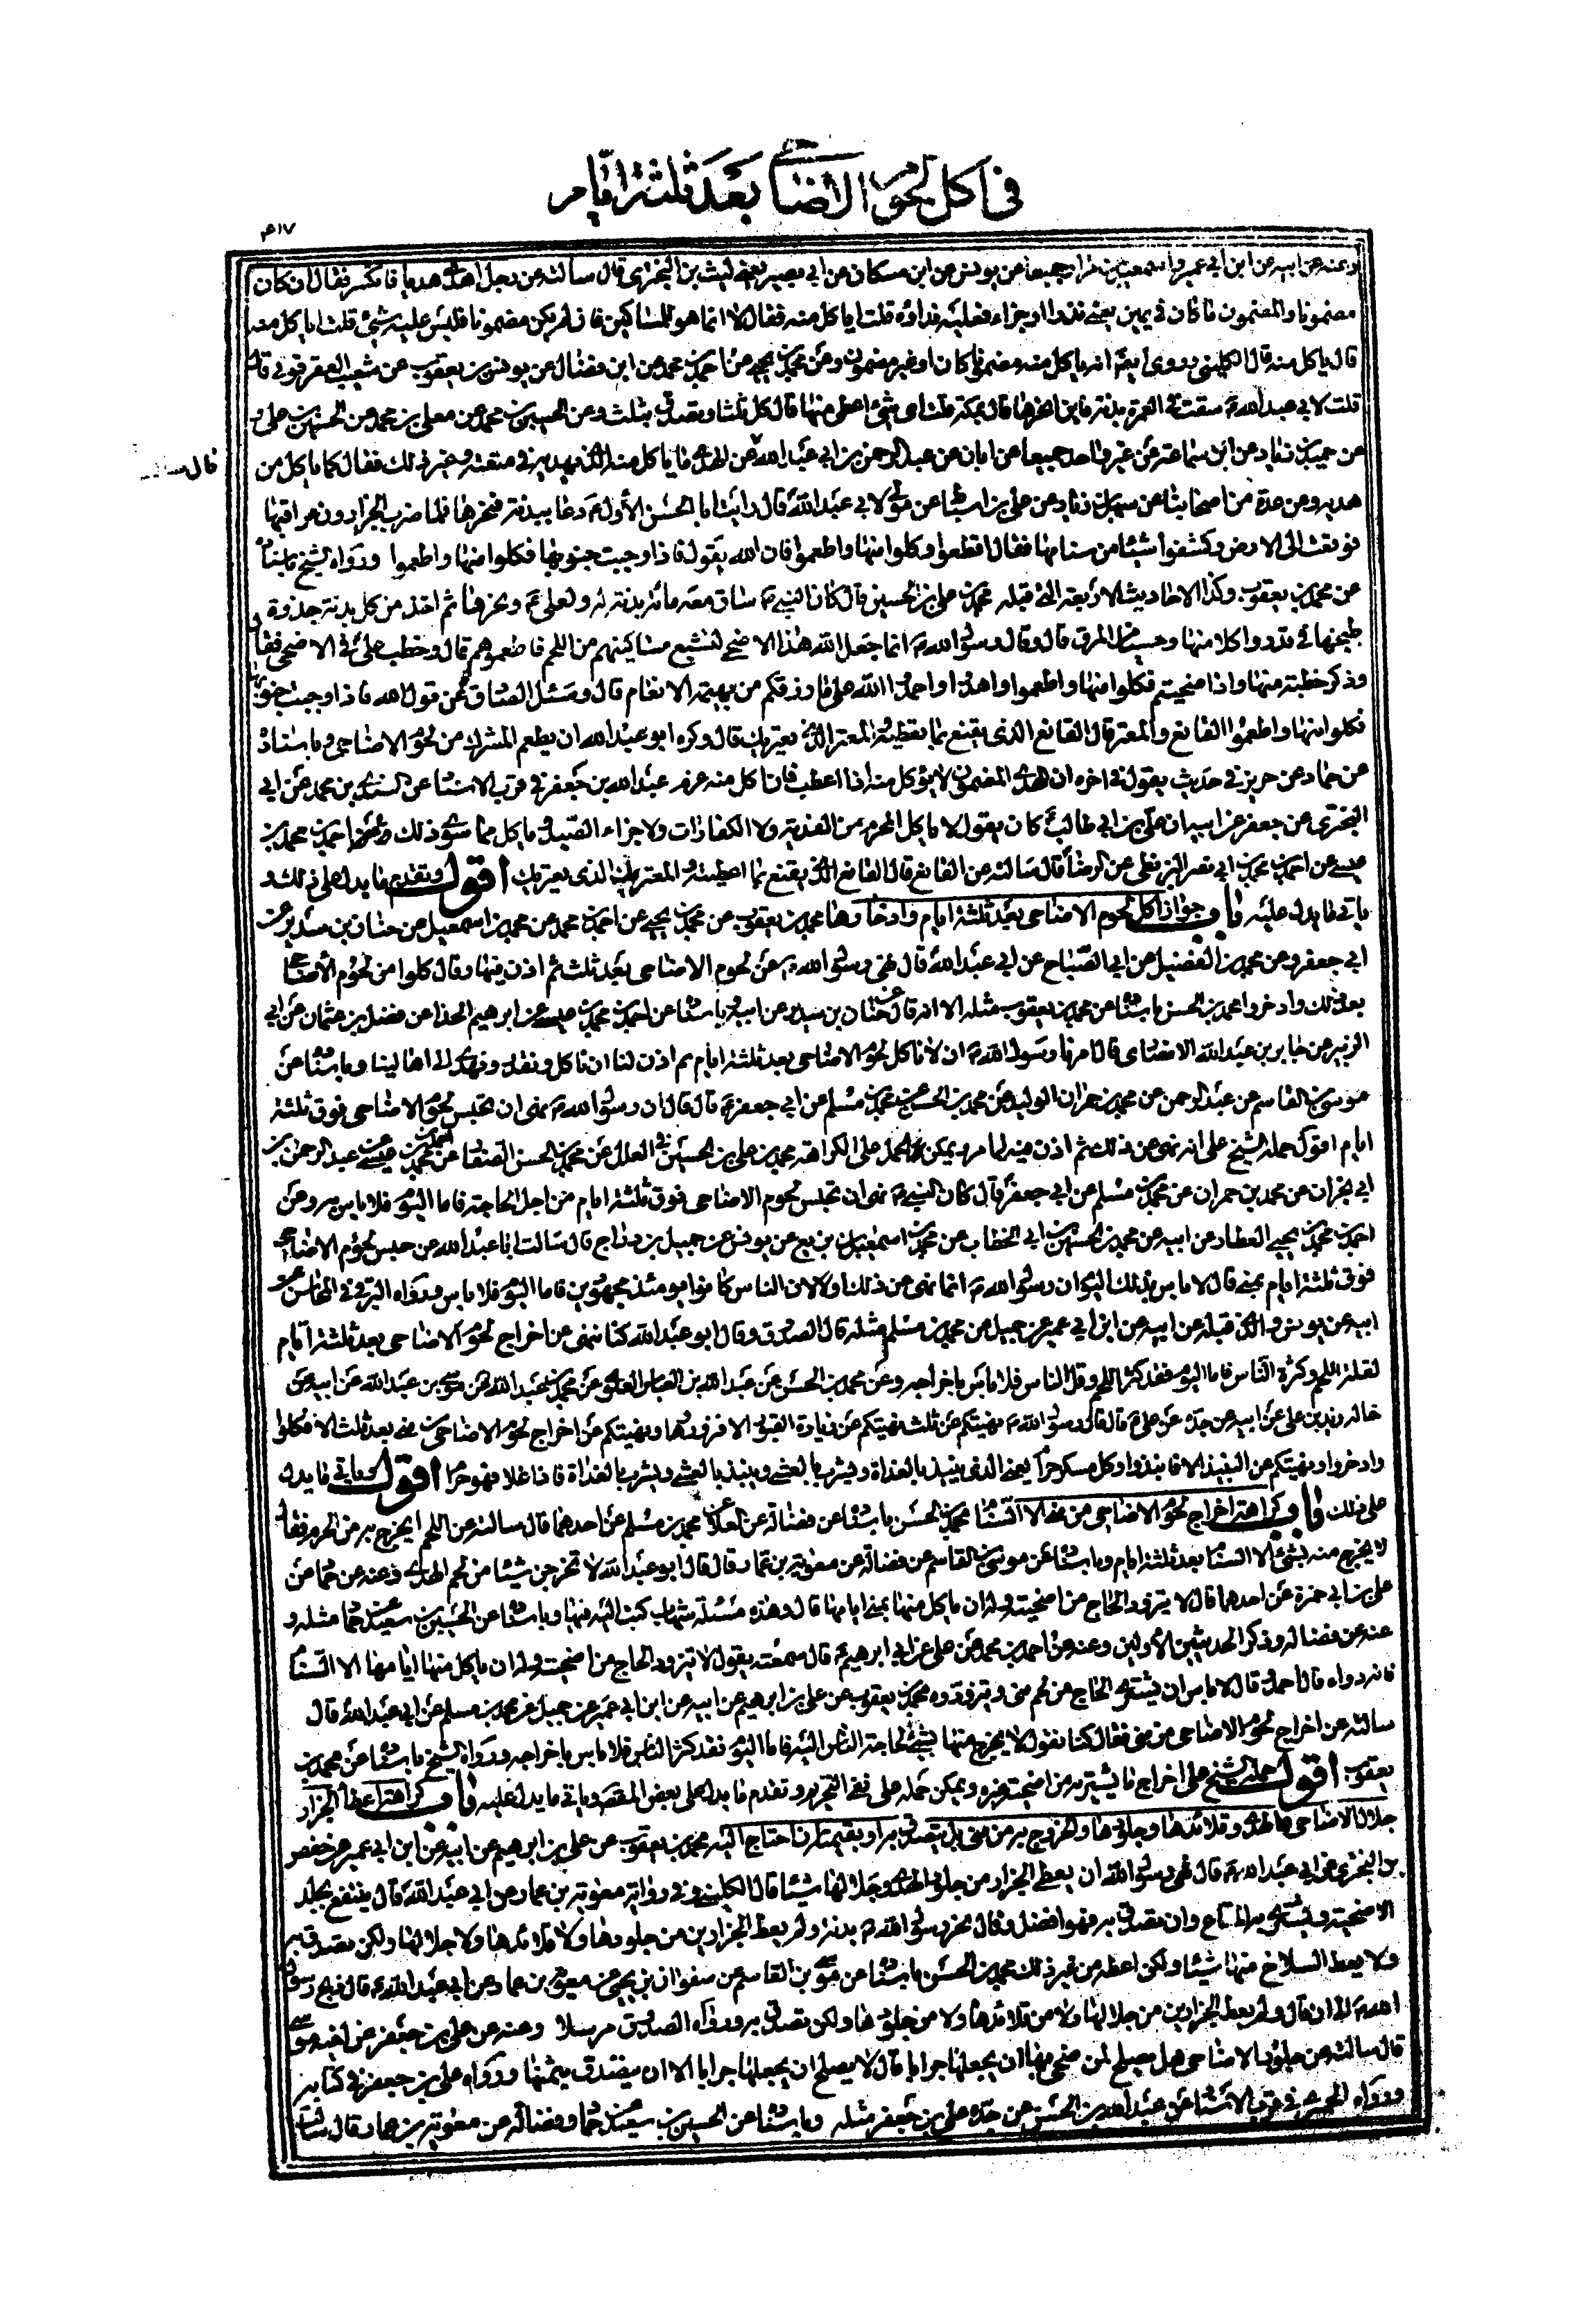 في اكل لحوم الاضاحي بعد ثلثة ايام
٤١٧
وعنه عن ابيه عن ابن ابي عمير و اسمعيل بن مرار جميعا عن يونس عن ابن مسكان عن ابي بصير يعني ليث بن البختري قال سالته عن رجل اهدى هديا فانكسر فقال ان كان
مضمونا والمضمون ما كان في يمين يعني نذرا او جزاء فعليه فداؤه قلت اياكل منه فقال لا انما هو للمساكين فان لم يكن مضمونا فليس عليه شئ قلت اياكل منه
قال ياكل منه قال الكليني وروي ايضا انه ياكل منه مضمونا كان او غير مضمون وعن محمد بن يحيى عن احمد بن محمد عن ابن فضال عن يونس بن يعقوب عن شعيب العقرقوفي قال
قلت لابي عبد الله ع سقت في العمرة بدنة فاين انحرها قال بمكة قلت اي شئ اعطي منها قال كل ثلثا وتصدق بثلث وعن الحسين بن محمد عن معلى بن محمد عن الحسن بن علي و
عن حميد بن زياد عن ابن سماعة عن غير واحد جميعا عن ابان عن عبد الرحمن عن ابي عبد الله ع عن الهدي ما ياكل منه الذي يهديه في متعته وغير ذلك فقال كما ياكل من
هديه وعن عدة من اصحابنا عن سهل بن زياد عن علي بن اسباط عن مولى لابي عبد الله ع قال رايت ابا الحسن الاول ع دعا ببدنة فنحرها فلما ضرب الجزارون عراقيبها
فوقعت الى الارض وكشفوا شيئا من سنامها فقال اقطعوا وكلوا منها واطعموا فان الله يقول فاذا وجبت جنوبها فكلوا منها واطعموا ورواه الشيخ باسناده
عن محمد بن يعقوب وكذا الاحاديث الاربعة التي قبله محمد بن علي بن الحسين قال كان النبي ص ساق معه مائة بدنة له ولعلي ع ونحرها ثم اخذ من كل بدنة جذوة
طبخها في قدر واكلا منها وحسيا من المرق قال وقال رسول الله ص انما جعل الله هذا الاضحى لتشبع مساكينهم من اللحم فاطعموهم قال وخطب علي ع في الاضحى فقال
وذكر خطبته منها واذا ضحيتم فكلوا منها واطعموا واهدوا واحمدوا الله على ما رزقكم من بهيمة الانعام قال وسئل الصادق ع عن قول الله فاذا وجبت جنوبها
فكلوا منها واطعموا القانع والمعتر قال القانع الذي يقنع بما تعطيه والمعتر الذي يعتريك قال وكره ابو عبد الله ان يطعم المشرك من لحوم الاضاحي وباسناده
عن حماد عن حريز في حديث يقول في اخره ان الهدي المضمون لا يؤكل منه اذا عطب فان اكل منه غرم عبد الله بن جعفر في قرب الاسناد عن السندي بن محمد عن ابي
البختري عن جعفر عن ابيه ان علي بن ابي طالب ع كان يقول لا ياكل المحرم من الفدية ولا الكفارات ولا جزاء الصيد وياكل مما سوى ذلك وعن احمد بن محمد بن
عيسى عن احمد بن محمد بن ابي نصر البزنطي عن الرضا ع قال سالته عن القانع قال القانع الذي يقنع بما اعطيته والمعتر الذي يعتريك اقول وتقدم ما يدل على ذلك و
ياتي ما يدل عليه باب جواز اكل لحوم الاضاحي بعد ثلثة ايام وادخارها محمد بن يعقوب عن محمد بن يحيى عن احمد بن محمد عن محمد بن اسمعيل عن حنان بن سدير عن
ابي جعفر وعن محمد بن الفضيل عن ابي الصباح عن ابي عبد الله ع قال نهى رسول الله ص عن لحوم الاضاحي بعد ثلث ثم اذن فيها وقال كلوا من لحوم الاضاحي
بعد ذلك وادخروا محمد بن الحسن باسناده عن محمد بن يعقوب مثله الا انه قال عن حنان بن سدير عن ابيه وباسناده عن احمد بن محمد بن عيسى عن ابرهيم الحذاء عن فضل بن عثمان عن ابي
الزبير عن جابر بن عبد الله الانصاري قال امرنا رسول الله ص ان لا ناكل لحوم الاضاحي بعد ثلثة ايام ثم اذن لنا ان ناكل ونقدد ونهدي الى اهالينا وباسناده عن
موسى بن القاسم عن عبد الرحمن عن محمد بن حمران عن محمد بن مسلم عن ابي جعفر ع قال قال ان رسول الله ص نهى ان تحبس لحوم الاضاحي فوق ثلثة
ايام اقول حمله الشيخ على انه نهى عن ذلك ثم اذن فيه لما مر ويمكن الحمل على الكراهة محمد بن علي بن الحسين في العلل عن محمد بن الحسن الصفار عن احمد بن محمد بن عيسى عن عبد الرحمن بن
ابي نجران عن محمد بن حمران عن محمد بن مسلم عن ابي جعفر ع قال كان النبي ص نهى ان تحبس لحوم الاضاحي فوق ثلثة ايام من اجل الحاجة فاما اليوم فلا باس به وعن
احمد بن محمد بن يحيى العطار عن ابيه عن محمد بن الحسين بن ابي الخطاب عن محمد بن اسمعيل بن بزيع عن يونس عن جميل بن دراج قال سالت ابا عبد الله عن حبس لحوم الاضاحي
فوق ثلثة ايام بمنى قال لا باس بذلك اليوم ان رسول الله ص انما نهى عن ذلك اولا لان الناس كانوا يومئذ مجهودين فاما اليوم فلا باس ورواه البرقي في المحاسن عن
ابيه عن يونس والذي قبله عن ابيه عن ابن ابي عمير عن جميل عن محمد بن مسلم مثله قال الصدوق وقال ابو عبد الله كنا ننهى عن اخراج لحوم الاضاحي بعد ثلثة ايام
لقلة اللحم وكثرة الناس فاما اليوم فقد كثر اللحم وقل الناس فلا باس باخراجه وعن محمد بن الحسن عن عبد الله بن العباس العلوي عن محمد بن عبد الله عن موسى بن عبد الله عن ابيه عن
خاله زيد بن علي عن ابيه عن جده عن علي ع قال قال رسول الله ص نهيتكم عن ثلث نهيتكم عن زيارة القبور الا فزوروها ونهيتكم عن اخراج لحوم الاضاحي من منى بعد ثلث الا فكلوا
وادخروا ونهيتكم عن النبيذ الا فانبذوا وكل مسكر حرام يعني الذي ينبذ بالغداة ويشرب بالعشي وينبذ بالعشي ويشرب بالغداة فاذا غلا فهو حرام اقول وياتي ما يدل
على ذلك باب كراهة اخراج لحوم الاضاحي من منى الا السنام محمد بن الحسن باسناده عن فضالة عن العلاء عن محمد بن مسلم عن احدهما قال سالته عن اللحم ايخرج به من الحرم فقال
لا يخرج منه بشئ الا السنام بعد ثلثة ايام وباسناده عن موسى بن القاسم عن فضالة عن معوية بن عمار قال قال ابو عبد الله لا تخرجن شيئا من لحم الهدي وعنه عن حماد عن
علي بن ابي حمزة عن احدهما قال لا يتزود الحاج من اضحيته وله ان ياكل منها بمنى ايامها قال وهذه مسئلة شهاب كتب اليه فيها وباسناده عن الحسين بن سعيد عن حماد مثله و
عنه عن فضالة وذكر الحديثين الاولين وعنه عن احمد بن محمد عن علي عن ابي ابرهيم ع قال سمعته يقول لا يتزود الحاج من اضحيته وله ان ياكل منها ايامها الا السنام
فانه دواء قال احمد وقال لا باس ان يشتري الحاج من لحم منى ويتزوده محمد بن يعقوب عن علي بن ابرهيم عن ابيه عن ابن ابي عمير عن جميل عن محمد بن مسلم عن ابي عبد الله ع قال
سالته عن اخراج لحوم الاضاحي من منى فقال كنا نقول لا يخرج منها بشئ لحاجة الناس اليه فاما اليوم فقد كثر الناس فلا باس باخراجه ورواه الشيخ باسناده عن محمد بن
يعقوب اقول حمله الشيخ على اخراج ما يشتريه من اضحية غيره ويمكن حمله على نفي التحريم وتقدم ما يدل على بعض المقصود وياتي ما يدل عليه باب كراهة اعطاء الجزار
جلال الاضاحي والهدي وقلائدها وجلودها والخروج به من منى بل يتصدق به او بقيمته ان احتاج اليه محمد بن يعقوب عن علي بن ابرهيم عن ابيه عن ابن ابي عمير عن حفص
بن البختري عن ابي عبد الله ع قال نهى رسول الله ان يعطى الجزار من جلود الهدي وجلالها شيئا قال الكليني وفي رواية معوية بن عمار عن ابي عبد الله ع قال ينتفع بجلد
الاضحية ويشترى به المتاع وان تصدق به فهو افضل وقال نحر رسول الله ص بدنة ولم يعط الجزارين من جلودها ولا قلائدها ولا جلالها ولكن تصدق به
ولا يعط السلاخ منها شيئا ولكن اعطه من غير ذلك محمد بن الحسن باسناده عن موسى بن القاسم عن صفوان بن يحيى عن معوية بن عمار عن ابي عبد الله ع قال ذبح رسول
الله ص الى ان قال ولم يعط الجزارين من جلالها ولا من قلائدها ولا من جلودها ولكن تصدق به ورواه الصدوق مرسلا وعنه عن علي بن جعفر عن اخيه موسى
قال سالته عن جلود الاضاحي هل يصلح لمن ضحى بها ان يجعلها جرابا قال لا يصلح ان يجعلها جرابا الا ان يتصدق بثمنها ورواه علي بن جعفر في كتابه
ورواه الحميري في قرب الاسناد عن عبد الله بن الحسن عن جده علي بن جعفر مثله وباسناده عن الحسين بن سعيد عن حماد وفضالة عن معوية بن عمار قال سالت
قال